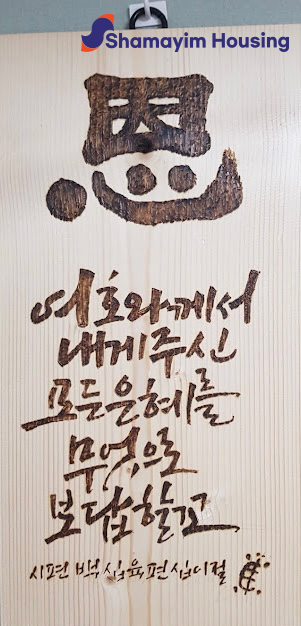 Shamayim Housing
恩
여호와께서
내게주신
모든은혜를
무엇으로
보답할꼬
시편 백십육편 십이절